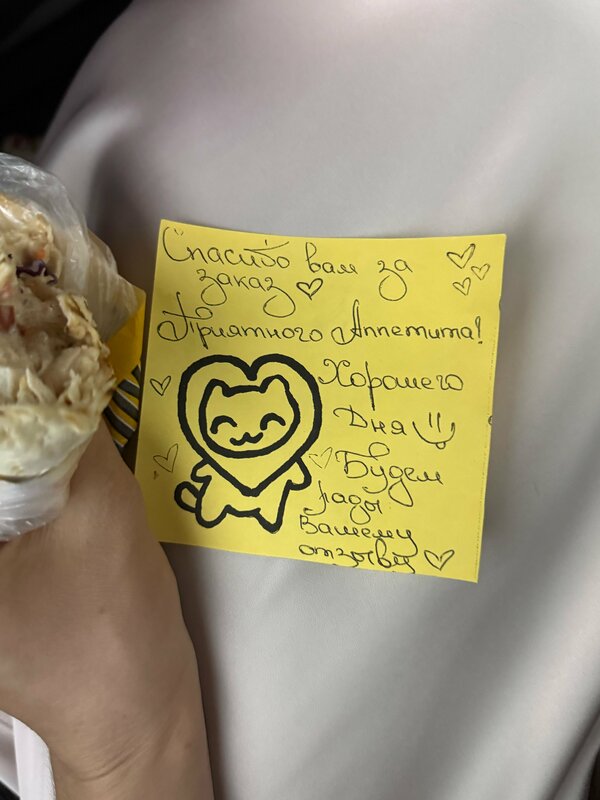 Спасибо вам за
заказ
Приятного Аппетита!
Хорошего
Дня
Будем
рады
Вашему
отзыву